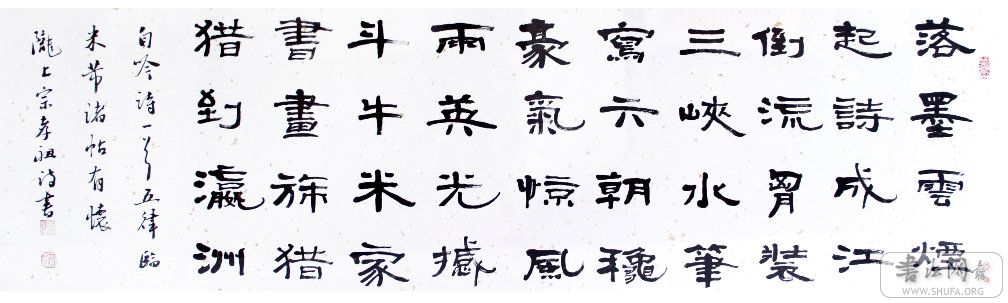 落墨雲煙
起詩成江
倒流胷裝
三峽水筆
寫六朝穐
豪氣惊風
雨英光撼
斗牛米家
書畫旆猎
猎到瀛洲
自吟詩一首五律臨
米芾诸帖有懷
隴上宗孝祖詩書
书法网
WWW.SHUFA.ORG